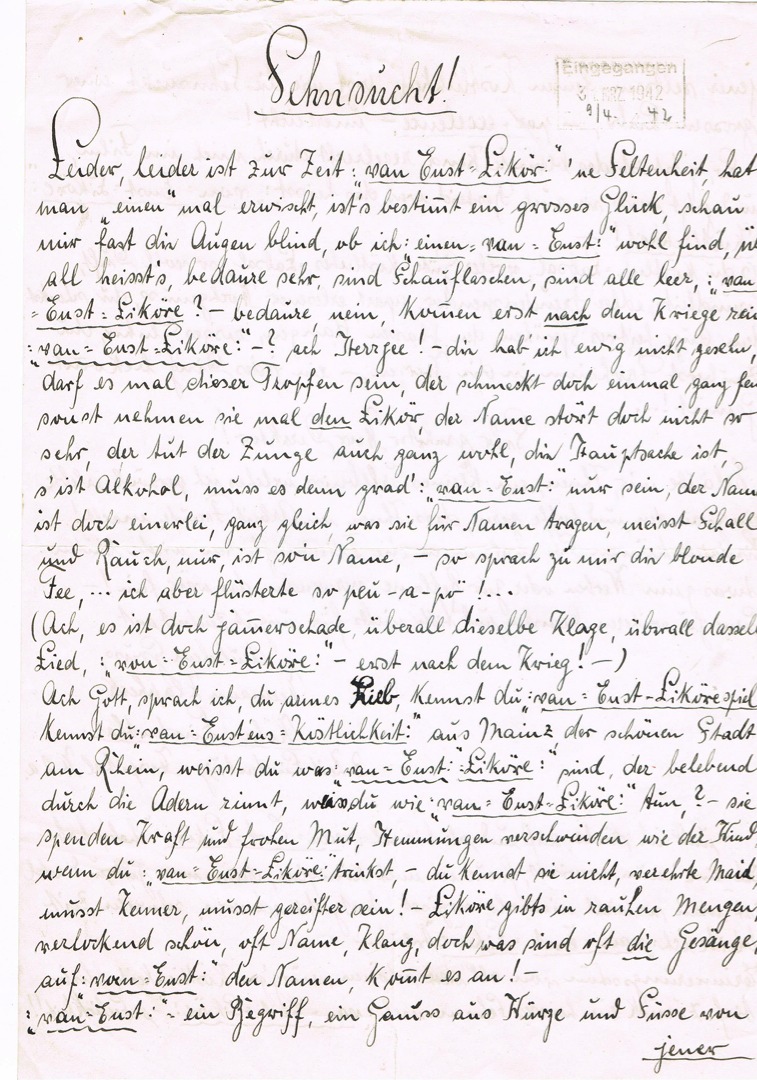 Sehnsucht!
Eingegangen
1942
9/4. 42
Leider, leider ist zur Zeit „van Enst=Likör:" 'ne Seltenheit, hat
man „einen" mal erwischt, ist's bestim̄t ein grosses Glück, schau
mir fast die Augen blind, ob ich: „einen=van=Enst:" wohl find, ü
all heisst's, bedaure sehr, sind Schauflaschen, sind alle leer, : „van
=Enst=Liköre? — bedaure, nein, kom̄en erst nach dem Kriege rein
: „van=Enst=Liköre:" —? ach Herrjee! — die hab' ich ewig nicht gesehn,
darf es mal dieser Tropfen sein, der schmeckt doch einmal ganz fein
sonst nehmen sie mal den Likör, der Name stört doch nicht so
sehr, der tut der Zunge auch ganz wohl, die Hauptsache ist,
s'ist Alkohol, muss es denn grad': „van=Enst:" nur sein, der Nam
ist doch einerlei, ganz gleich, was sie für Namen tragen, meisst Schall
und Rauch, nur, ist so'n Name, — so sprach zu mir die blonde
Fee, ... ich aber flüsterte so peu-a-pö"!...
(Ach, es ist doch jam̄erschade, überall dieselbe Klage, überall dassel
Lied, : „van=Enst=Liköre:" — erst nach dem Krieg! —)
Ach Gott, sprach ich, du armes Lieb, kennst du: „van=Enst-Likörespiel
kennst du: „van=Enst'ens=Köstlichkeit:" aus Mainz, der schönen Stadt
am Rhein, weisst du was: „van=Enst:"=Liköre:" sind, der belebend
durch die Adern rinnt, weisdu wie: „van=Enst=Liköre:" tun,? — sie
spenden Kraft und frohen Mut, Hemmungen verschwinden wie der Wind,
wenn du : „van=Enst=Liköre:" trinkst, — du kennst sie nicht, verehrte Maid,
musst Kenner, musst gereifter sein! — Liköre gibts in rauhen Mengen,
verlockend schön, oft Name, Klang, doch was sind oft die Gesänge,
auf: „van=Enst:" den Namen, kom̄t es an! —
: „van=Enst:" — ein Begriff, ein Genuss aus Würze und Süsse von
jener